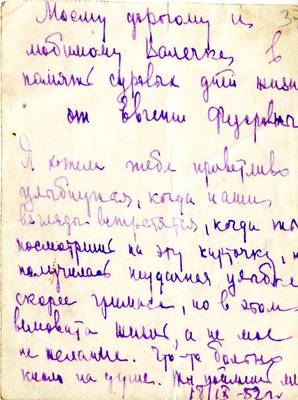 Моему дорогому и
любимому Валечке, в
память суровых дней жизни
от Евгении Федоровны
Я хотела тебе приветливо
улыбнуться, когда наши
взгляды встретятся, когда ты
посмотришь на эту карточку,
получилась неудачная улыбка
скорее гримаса, но в этом
виновата жизнь, а не мое
не желание. Что-то больно
кисло на душе. Ты поймешь ме
18/IX-52 г.